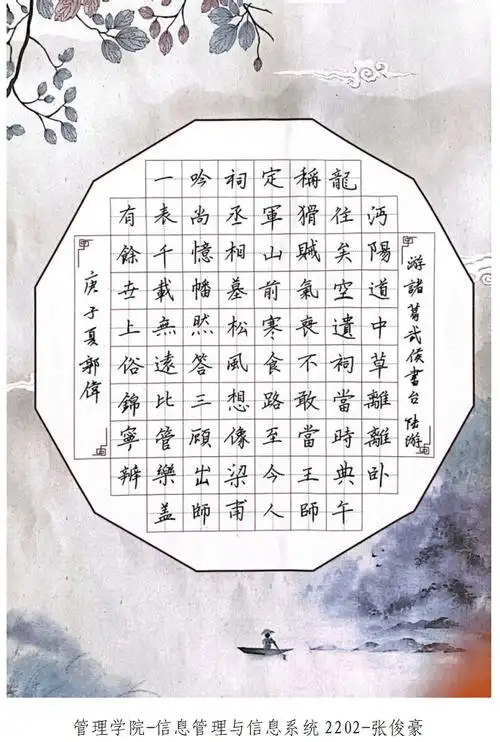 游諸葛武侯書台 陸游
沔陽道中草離離卧
龍住矣空遺祠當時典午
稱猾賊氣喪不敢當王師
定軍山前寒食路至今人
祠丞相墓松風想像梁甫
吟尚憶幡然答三顧出師
一表千載無遠比管樂蓋
有餘世上俗錦寧辨
庚子夏郭偉
管理学院-信息管理与信息系统2202-张俊豪